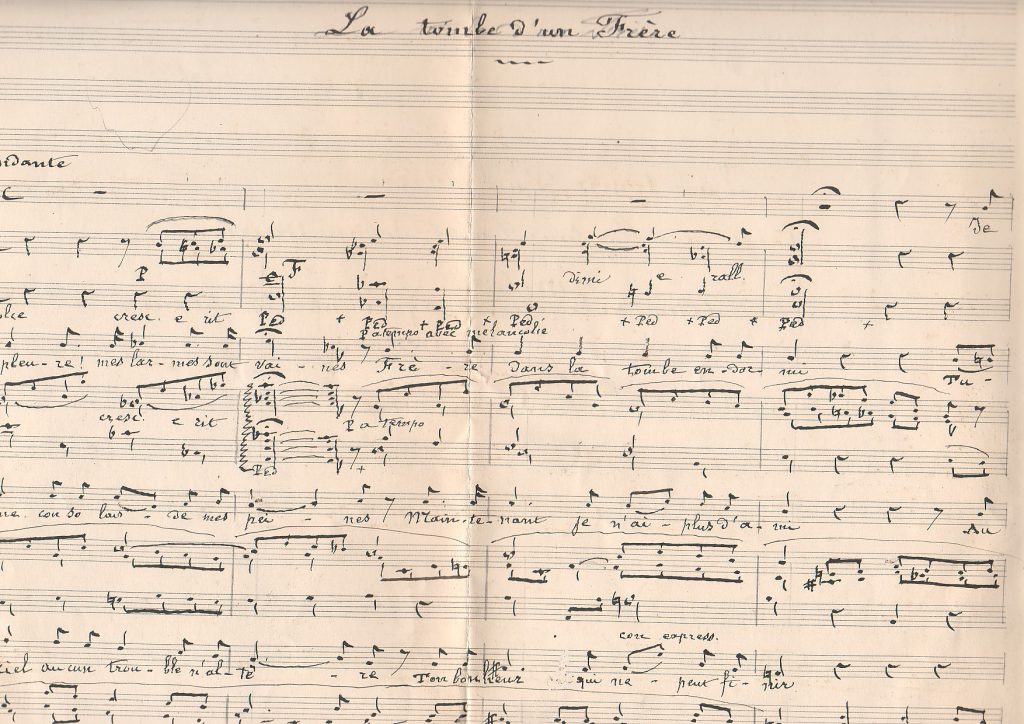 La tombe d'un Frère
ndante
De
P
F
dimi e rall.
lce cresc. e rit Ped + Ped + Ped + Ped + Ped + Ped + Ped +
P a tempo avec mélancolie
pleu-re! mes lar-mes sont vai-nes Frè-re dans la tombe en-dor-mi Tu-
cresc. e rit P a Tempo
Ped +
me con so lais-de mes pei-nes Main-te-nant je n'ai-plus d'a-mi Au
con express.
ciel aucun trou-ble n'al-tè-re Ton bonheur qui ne-peut fi-nir